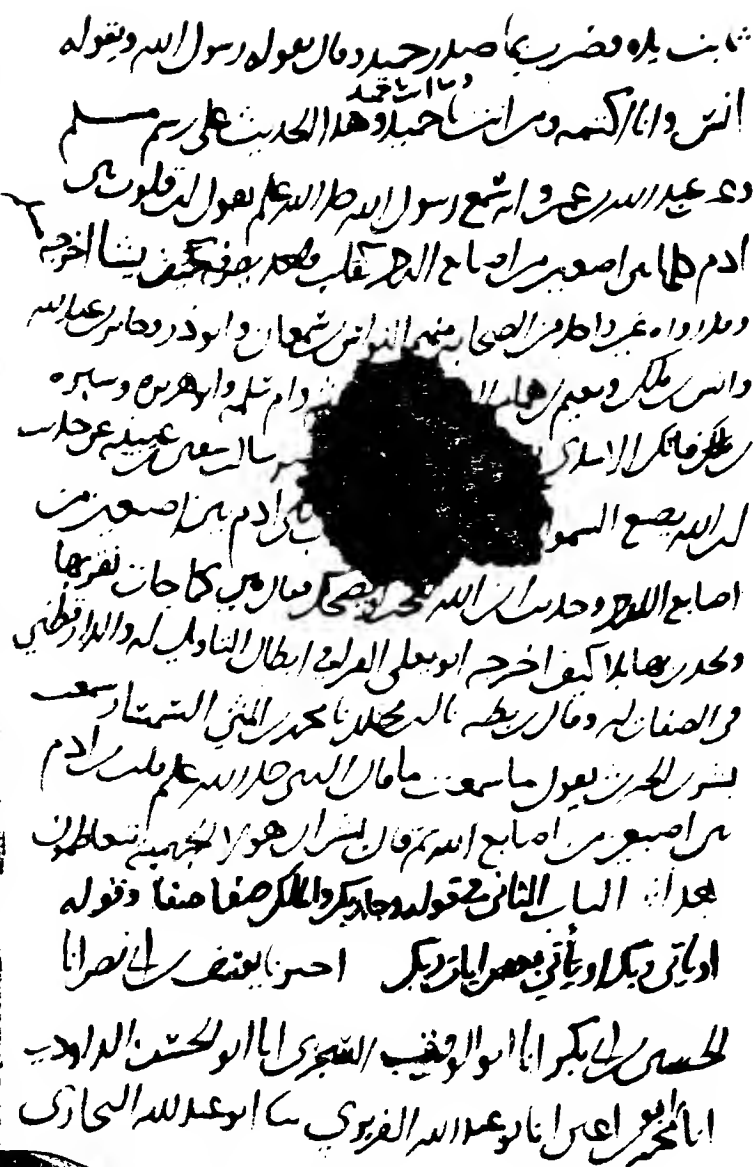 ثابت يده فضرب بها صدر حميد وقال يقوله رسول الله ويقوله
انس وانا اكتمه ومن انت يا حميد وما انت يا حميد وهذا الحديث على رسم مسلم
وعن عبد الله بن عمرو انه سمع رسول الله صلى الله علم يقول ان قلوب بني
ادم كلها بين اصبعين من اصابع الرحمن كقلب واحد يصرفه كيف يشا اخرجه م
وقد رواه غير واحد من الصحابة منهم النواس بن سمعان وابو ذر وجابر بن عبد الله
وانس بن ملك ونعيم بن همار وام سلمه وابو هريره وسبره
بن فاتك الاسدي سالت سفين بن عيينه عن حديث
ان الله يضع السموا بني ادم بين اصبعين من
اصابع الرحمن وحديث ان الله يعجب ويضحك فقال هي كما جات نقر بها
ونحدث بها بلا كيف اخرجه ابو يعلى الفرا في ابطال التاويل له والدارقطني
في الصفات له وقال بن بطه نا بن مخلد نا محمد بن المثنى السمسار سمعت
بشر بن الحرث يقول ما سمعت ما قال النبي صلى الله علم قلب بن ادم
بين اصبعين من اصابع الله ثم قال بشر ان هولا الجهميه يتعاظمون
هذا الباب الثاني في قوله وجا ربك والملك صفا صفا وقوله
او ياتي ربك او يأتي بعض ايات ربك اخبرنا يوسف بن ابي نصر انا
الحسين بن ابي بكر انا ابو الوقت السجزي انا ابو الحسن الداودي
انا ابو محمد بن اعين انا ابو عبد الله الفربري ثنا ابو عبد الله البخاري